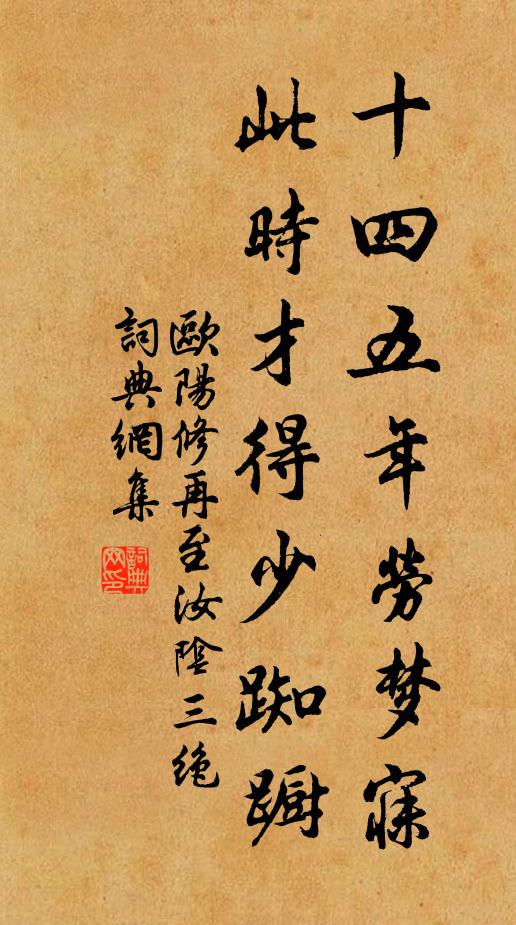 十四五年劳梦寐
此時才得少踟躕
歐陽修再至汝陰三绝
詞典網集
詞典网印